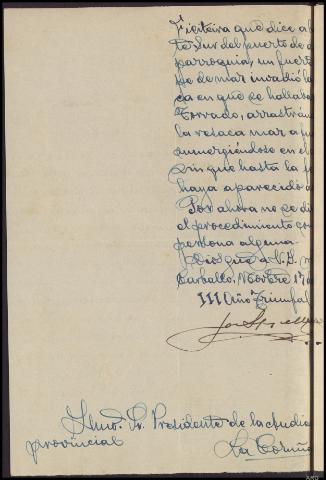 Freiteira que dice a
te Sur del puerto de
parroquia, un fuert
pe de mar invadió la
ca en que se hallaba
Torrado, arrastrán
la resaca mar a
sumergiéndose en el
sin que hasta la f
haya aparecido
Por ahora no se di
el procedimiento con
persona alguna.
Dios gue a V.I. m
Carballo, Novbre 17
III Año Triunfal
Ilmo. Sr. Presidente de la Audie
provincial
La Coruña